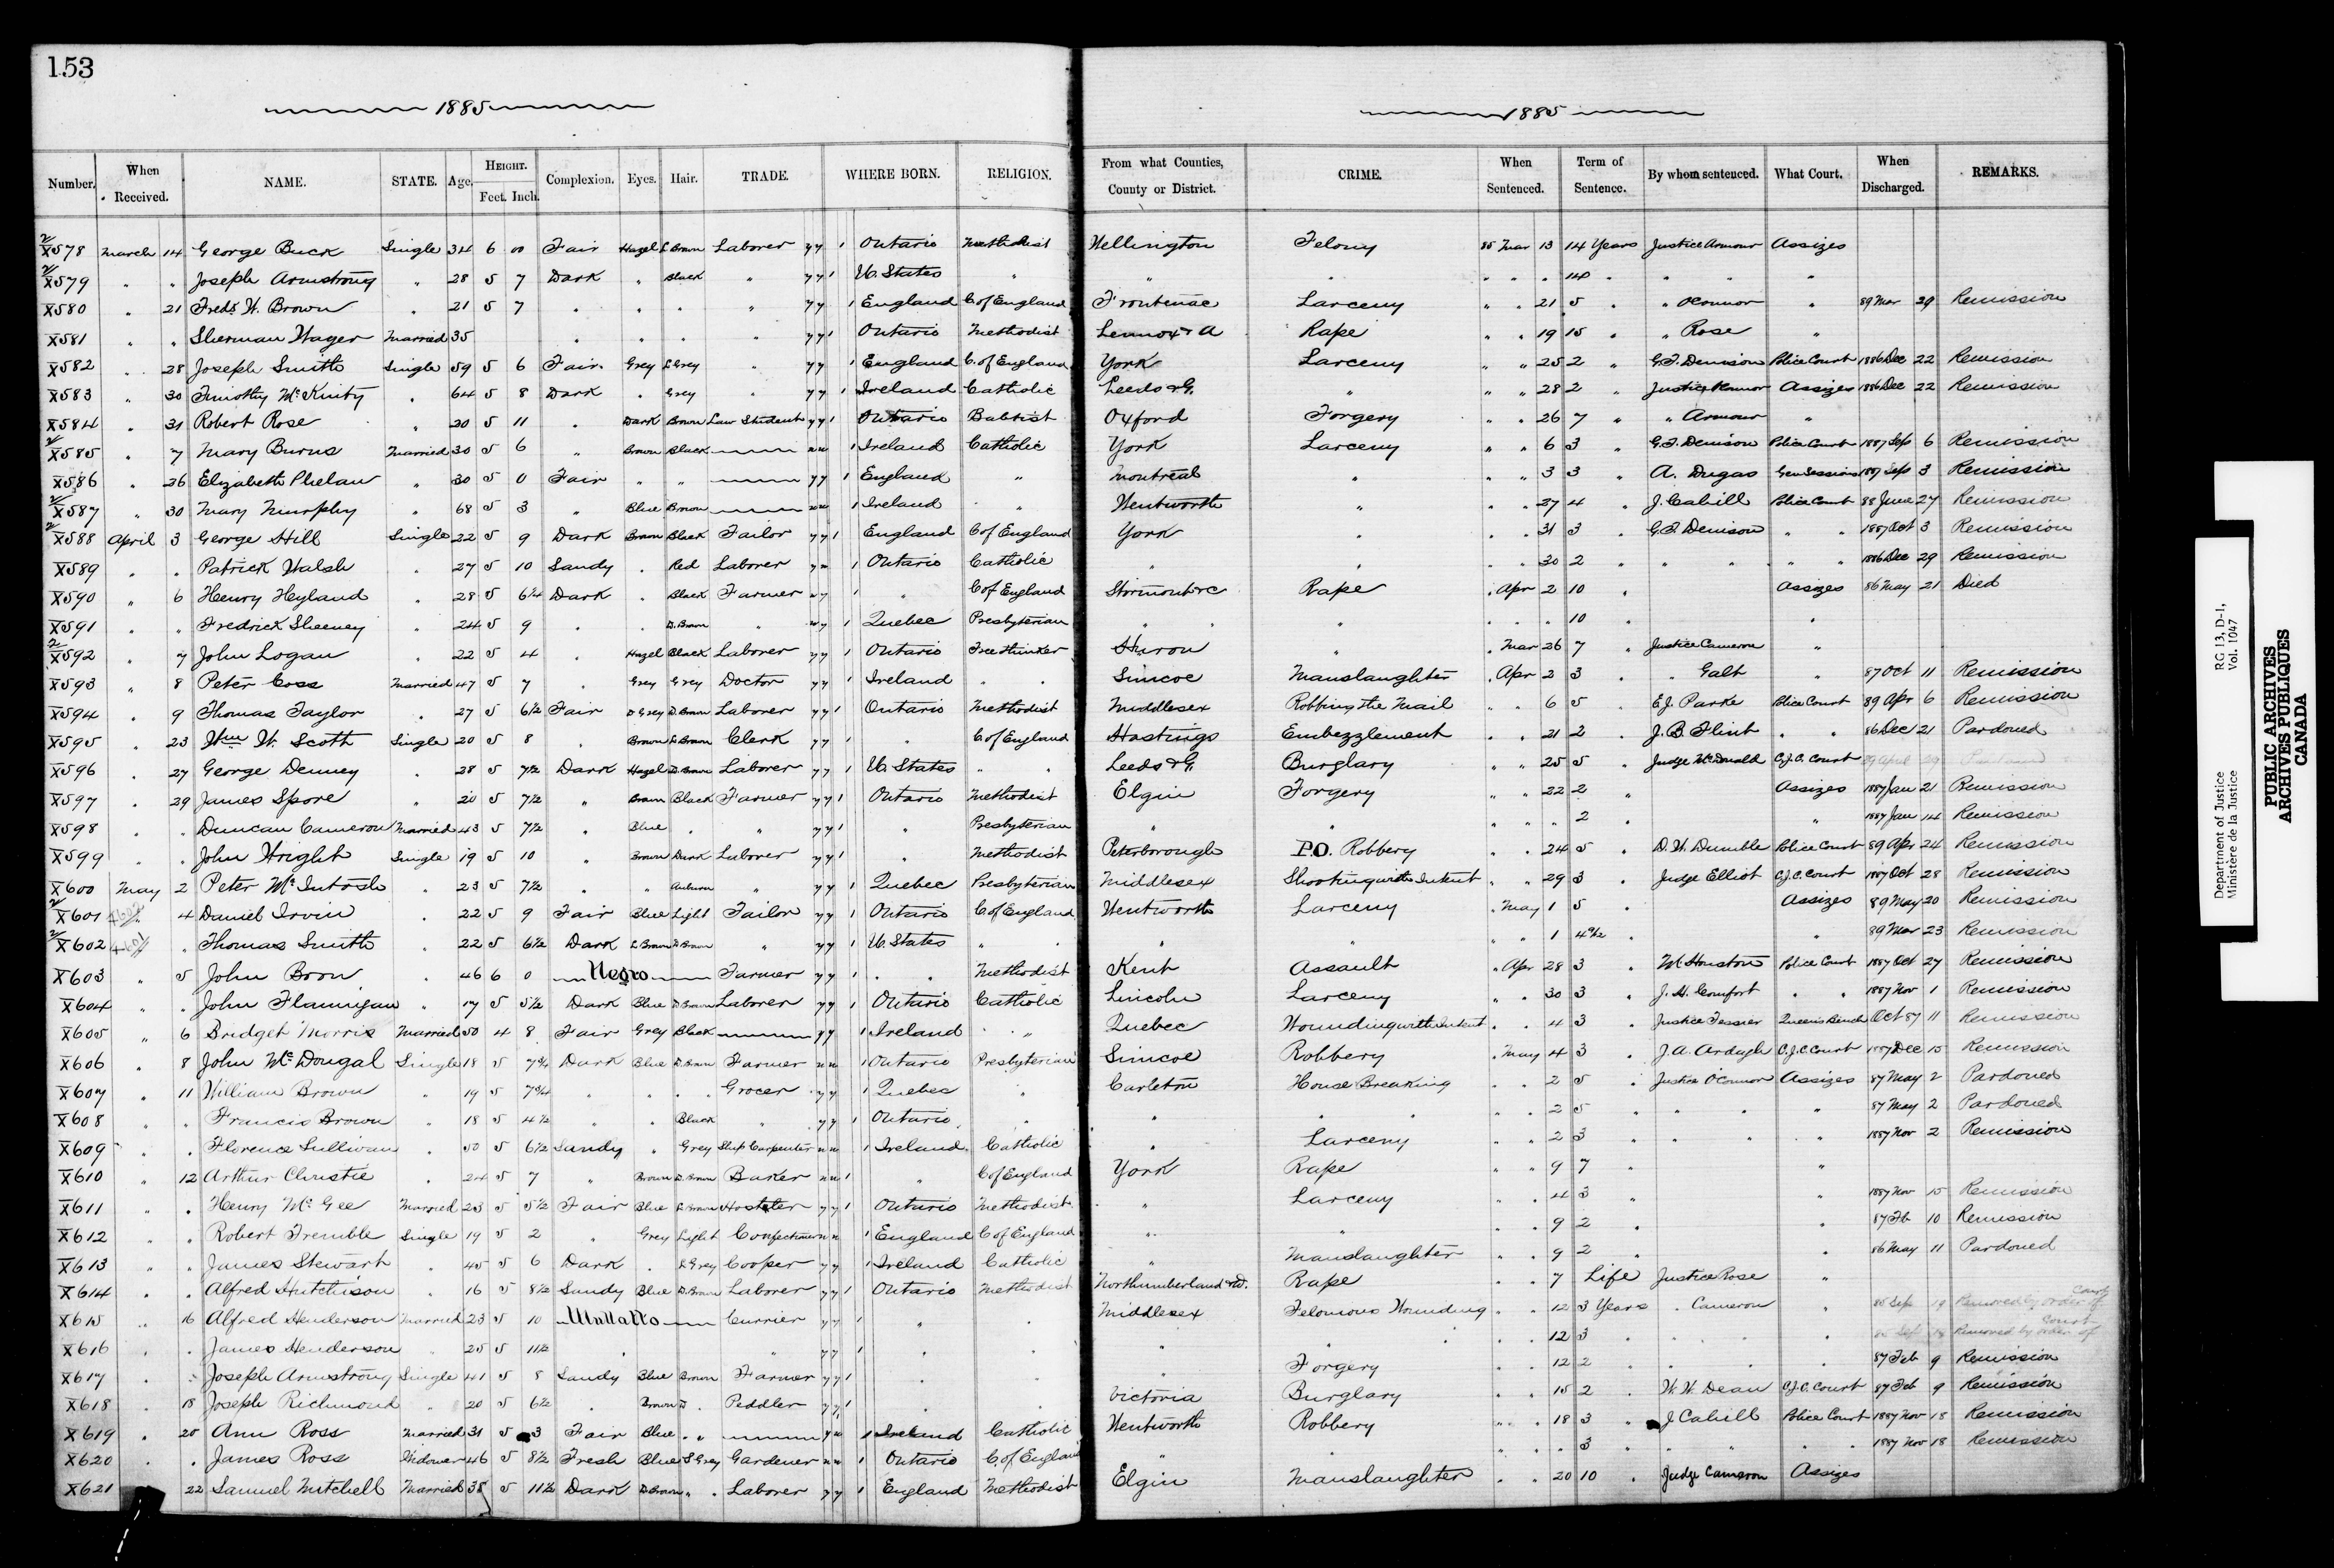 153
1885
1885
Number. When Received. NAME. STATE. Age. HEIGHT. Feet. Inch. Complexion. Eyes. Hair. TRADE. WHERE BORN. RELIGION. From what Counties, County or District. CRIME. When Sentenced. Term of Sentence. By whom sentenced. What Court. When Discharged. REMARKS.
X578 March 14 George Buck Single 34 6 00 Fair Hazel L Brown Laborer y y 1 Ontario Methodist Wellington Felony 85 Mar 13 14 Years Justice Armour Assizes
X579 " " Joseph Armstrong " 28 5 7 Dark " Black " y y 1 U. States " " " " " " 14 " " " "
X580 " 21 Fredk W. Brown " 21 5 7 " " " " y y 1 England C of England Frontenac Larceny " " 21 5 " " OConnor " 89 Mar 29 Remission
X581 " " Sherman Wager Married 35 " " " " y y 1 Ontario Methodist Lennox & A Rape " " 19 15 " " Rose "
X582 " 28 Joseph Smith Single 59 5 6 Fair Grey L Grey " y y 1 England C. of England York Larceny " " 25 2 " G.T. Denison Police Court 1886 Dec 22 Remission
X583 " 30 Timothy McKinty " 64 5 8 Dark " Grey " y y 1 Ireland Catholic Leeds & G. " " " 28 2 " Justice Assizes 1886 Dec 22 Remission
X584 " 31 Robert Rose " 20 5 11 " Dark Brown Law Student y y 1 Ontario Babtist Oxford Forgery " " 26 7 " " Armour "
X585 " 7 Mary Burns Married 30 5 6 " Brown Black n n 1 Ireland Catholic York Larceny " " 6 3 " G.T. Denison Police Court 1887 Sep 6 Remission
X586 " 26 Elizabeth Phelan " 30 5 0 Fair " " y y 1 England " Montreal " " " 3 3 " A. Dugas Gen Sessions 1887 Sep 3 Remission
X587 " 30 Mary Murphy " 68 5 3 " Blue Brown n n 1 Ireland " Wentworth " " " 27 4 " J. Cahill Police Court 88 June 27 Remission
X588 April 3 George Hill Single 22 5 9 Dark Brown Black Tailor y y 1 England C of England York " " " 31 3 " G.T. Denison " " 1887 Oct 3 Remission
X589 " " Patrick Walsh " 27 5 10 Sandy " Red Laborer y n 1 Ontario Catholic " " " " 30 2 " " " " " 1886 Dec 29 Remission
X590 " 6 Henry Heyland " 28 5 6¼ Dark " Black Farmer n y 1 " C of England Stormont &c Rape " Apr 2 10 " Assizes 86 May 21 Died
X591 " " Fredrick Sheeney " 24 5 9 " " D. Brown " n y 1 Quebec Presbyterian " " " " " 10 "
X592 " 7 John Logan " 22 5 4 " Hazel Black Laborer y y 1 Ontario Free thinker Huron " " Mar 26 7 " Justice Cameron "
X593 " 8 Peter Coss Married 47 5 7 " Grey Grey Doctor y y 1 Ireland " " Simcoe Manslaughter " Apr 2 3 " " Galt " 87 Oct 11 Remission
X594 " 9 Thomas Taylor " 27 5 6½ Fair D Grey D. Brown Laborer y y 1 Ontario Methodist Middlesex Robbing the Mail " " 6 5 " E.J. Parke Police Court 89 Apr 6 Remission
X595 " 23 Wm W. Scott Single 20 5 8 " Brown D Brown Clerk y y 1 " C of England Hastings Embezzlement " " 21 2 " J.B. Flint " " 86 Dec 21 Pardoned
X596 " 27 George Denney " 28 5 7½ Dark Hazel D. Brown Laborer y y 1 U. States " " Leeds & G. Burglary " " 25 5 " Judge McDonald C.J.C. Court 89 April 29
X597 " 29 James Spore " 20 5 7½ " Brown Black Farmer y y 1 Ontario Methodist Elgin Forgery " " 22 2 " Assizes 1887 Jan 21 Remission
X598 " " Duncan Cameron Married 43 5 7½ " Blue " " y y 1 " Presbyterian " " " " " 2 " " 1887 Jan 14 Remission
X599 " " John Wright Single 19 5 10 " Brown Dark Laborer y y 1 " Methodist Peterborough P.O. Robbery " " 24 5 " D.W. Dumble Police Court 89 Apr 24 Remission
X600 May 2 Peter McIntosh " 23 5 7½ " " Auburn " y y 1 Quebec Presbyterian Middlesex Shooting with Intent " " 29 3 " Judge Elliot C.J.C. Court 1887 Oct 28 Remission
X601 4 Daniel Irvin " 22 5 9 Fair Blue Light Tailor y y 1 Ontario C of England Wentworth Larceny " May 1 5 " Assizes 89 May 20 Remission
X602 " Thomas Smith " 22 5 6½ Dark L Brown D Brown " y y 1 U. States " " " " " " 1 4½ " " 89 Mar 23 Remission
X603 " 5 John Boon " 46 6 0 Negro Farmer y y 1 " " Methodist Kent Assault " Apr 28 3 " Wm Houston Police Court 1887 Oct 27 Remission
X604 " " John Flannigan " 17 5 5½ Dark Blue D Brown Laborer y y 1 Ontario Catholic Lincoln Larceny " " 30 3 " J.H. Comfort " " 1887 Nov 1 Remission
X605 " 6 Bridget Morris Married 50 4 8 Fair Grey Black y y 1 Ireland " " Quebec Wounding with Intent " " 4 3 " Justice Tessier Queens Bench Oct 87 11 Remission
X606 " 8 John McDougal Single 18 5 7¾ Dark Blue D. Brown Farmer n n 1 Ontario Presbyterian Simcoe Robbery " May 4 3 " J.A. Ardagh C.J.C. Court 1887 Dec 15 Remission
X607 " 11 William Brown " 19 5 7¾ " " " Grocer y y 1 Quebec " Carleton House Breaking " " 2 5 " Justice O'Connor Assizes 87 May 2 Pardoned
X608 " " Francis Brown " 18 5 4½ " " Black " y y 1 Ontario " " " " " 2 5 " " " " 87 May 2 Pardoned
X609 " " Florence Sullivan " 50 5 6½ Sandy " Grey Ship Carpenter n n 1 Ireland Catholic " Larceny " " 2 3 " " " " 1887 Nov 2 Remission
X610 " 12 Arthur Christie " 24 5 7 " Brown D. Brown Baker n n 1 " C of England York Rape " " 9 7 " "
X611 " " Henry McGee Married 23 5 5½ Fair Blue L Brown Hosteler y y 1 Ontario Methodist " Larceny " " 4 3 " " 1887 Nov 15 Remission
X612 " " Robert Tremble Single 19 5 2 " Grey Light Confectioner n n 1 England C of England " " " " 9 2 " " 87 Fb 10 Remission
X613 " " James Stewart " 45 5 6 Dark " L Grey Cooper y y 1 Ireland Catholic " Manslaughter " " 9 2 " " 86 May 11 Pardoned
X614 " " Alfred Hutchison " 16 5 8½ Sandy Blue D. Brown Laborer y y 1 Ontario Methodist Northumberland & D. Rape " " 7 Life Justice Rose "
X615 " 16 Alfred Henderson Married 23 5 10 Mullatto Currier y y 1 " " Middlesex Felonious Wounding " " 12 3 Years " Cameron " 85 Sep 19 Removed by order of Court
X616 " " James Henderson " 25 5 11½ " " y y 1 " " " " " " 12 3 " " " 85 Sep 18 Removed by order of Court
X617 " " Joseph Armstrong Single 41 5 8 Sandy Blue Brown Farmer y y 1 " " " Forgery " " 12 2 " " " 87 Feb 9 Remission
X618 " 18 Joseph Richmond " 20 5 6½ " Brown D " Peddler y y 1 " " Victoria Burglary " " 15 2 " W.W. Dean C.J.C. Court 87 Feb 9 Remission
X619 " 20 Ann Ross Married 31 5 3 Fair Blue " " y n 1 Ireland Catholic Wentworth Robbery " " 18 3 " J Cahill Police Court 1887 Nov 18 Remission
X620 " " James Ross Widower 46 5 8½ Fresh Blue S Grey Gardener n n 1 Ontario C of England " " " " " 3 " " " " " 1887 Nov 18 Remission
X621 22 Samuel Mitchell Married 38 5 11½ Dark D Brown " " Laborer y y 1 England Methodist Elgin Manslaughter " " 20 10 " Judge Cameron Assizes
Department of Justice RG 13, D-1,
Ministère de la Justice Vol. 1047
PUBLIC ARCHIVES
ARCHIVES PUBLIQUES
CANADA